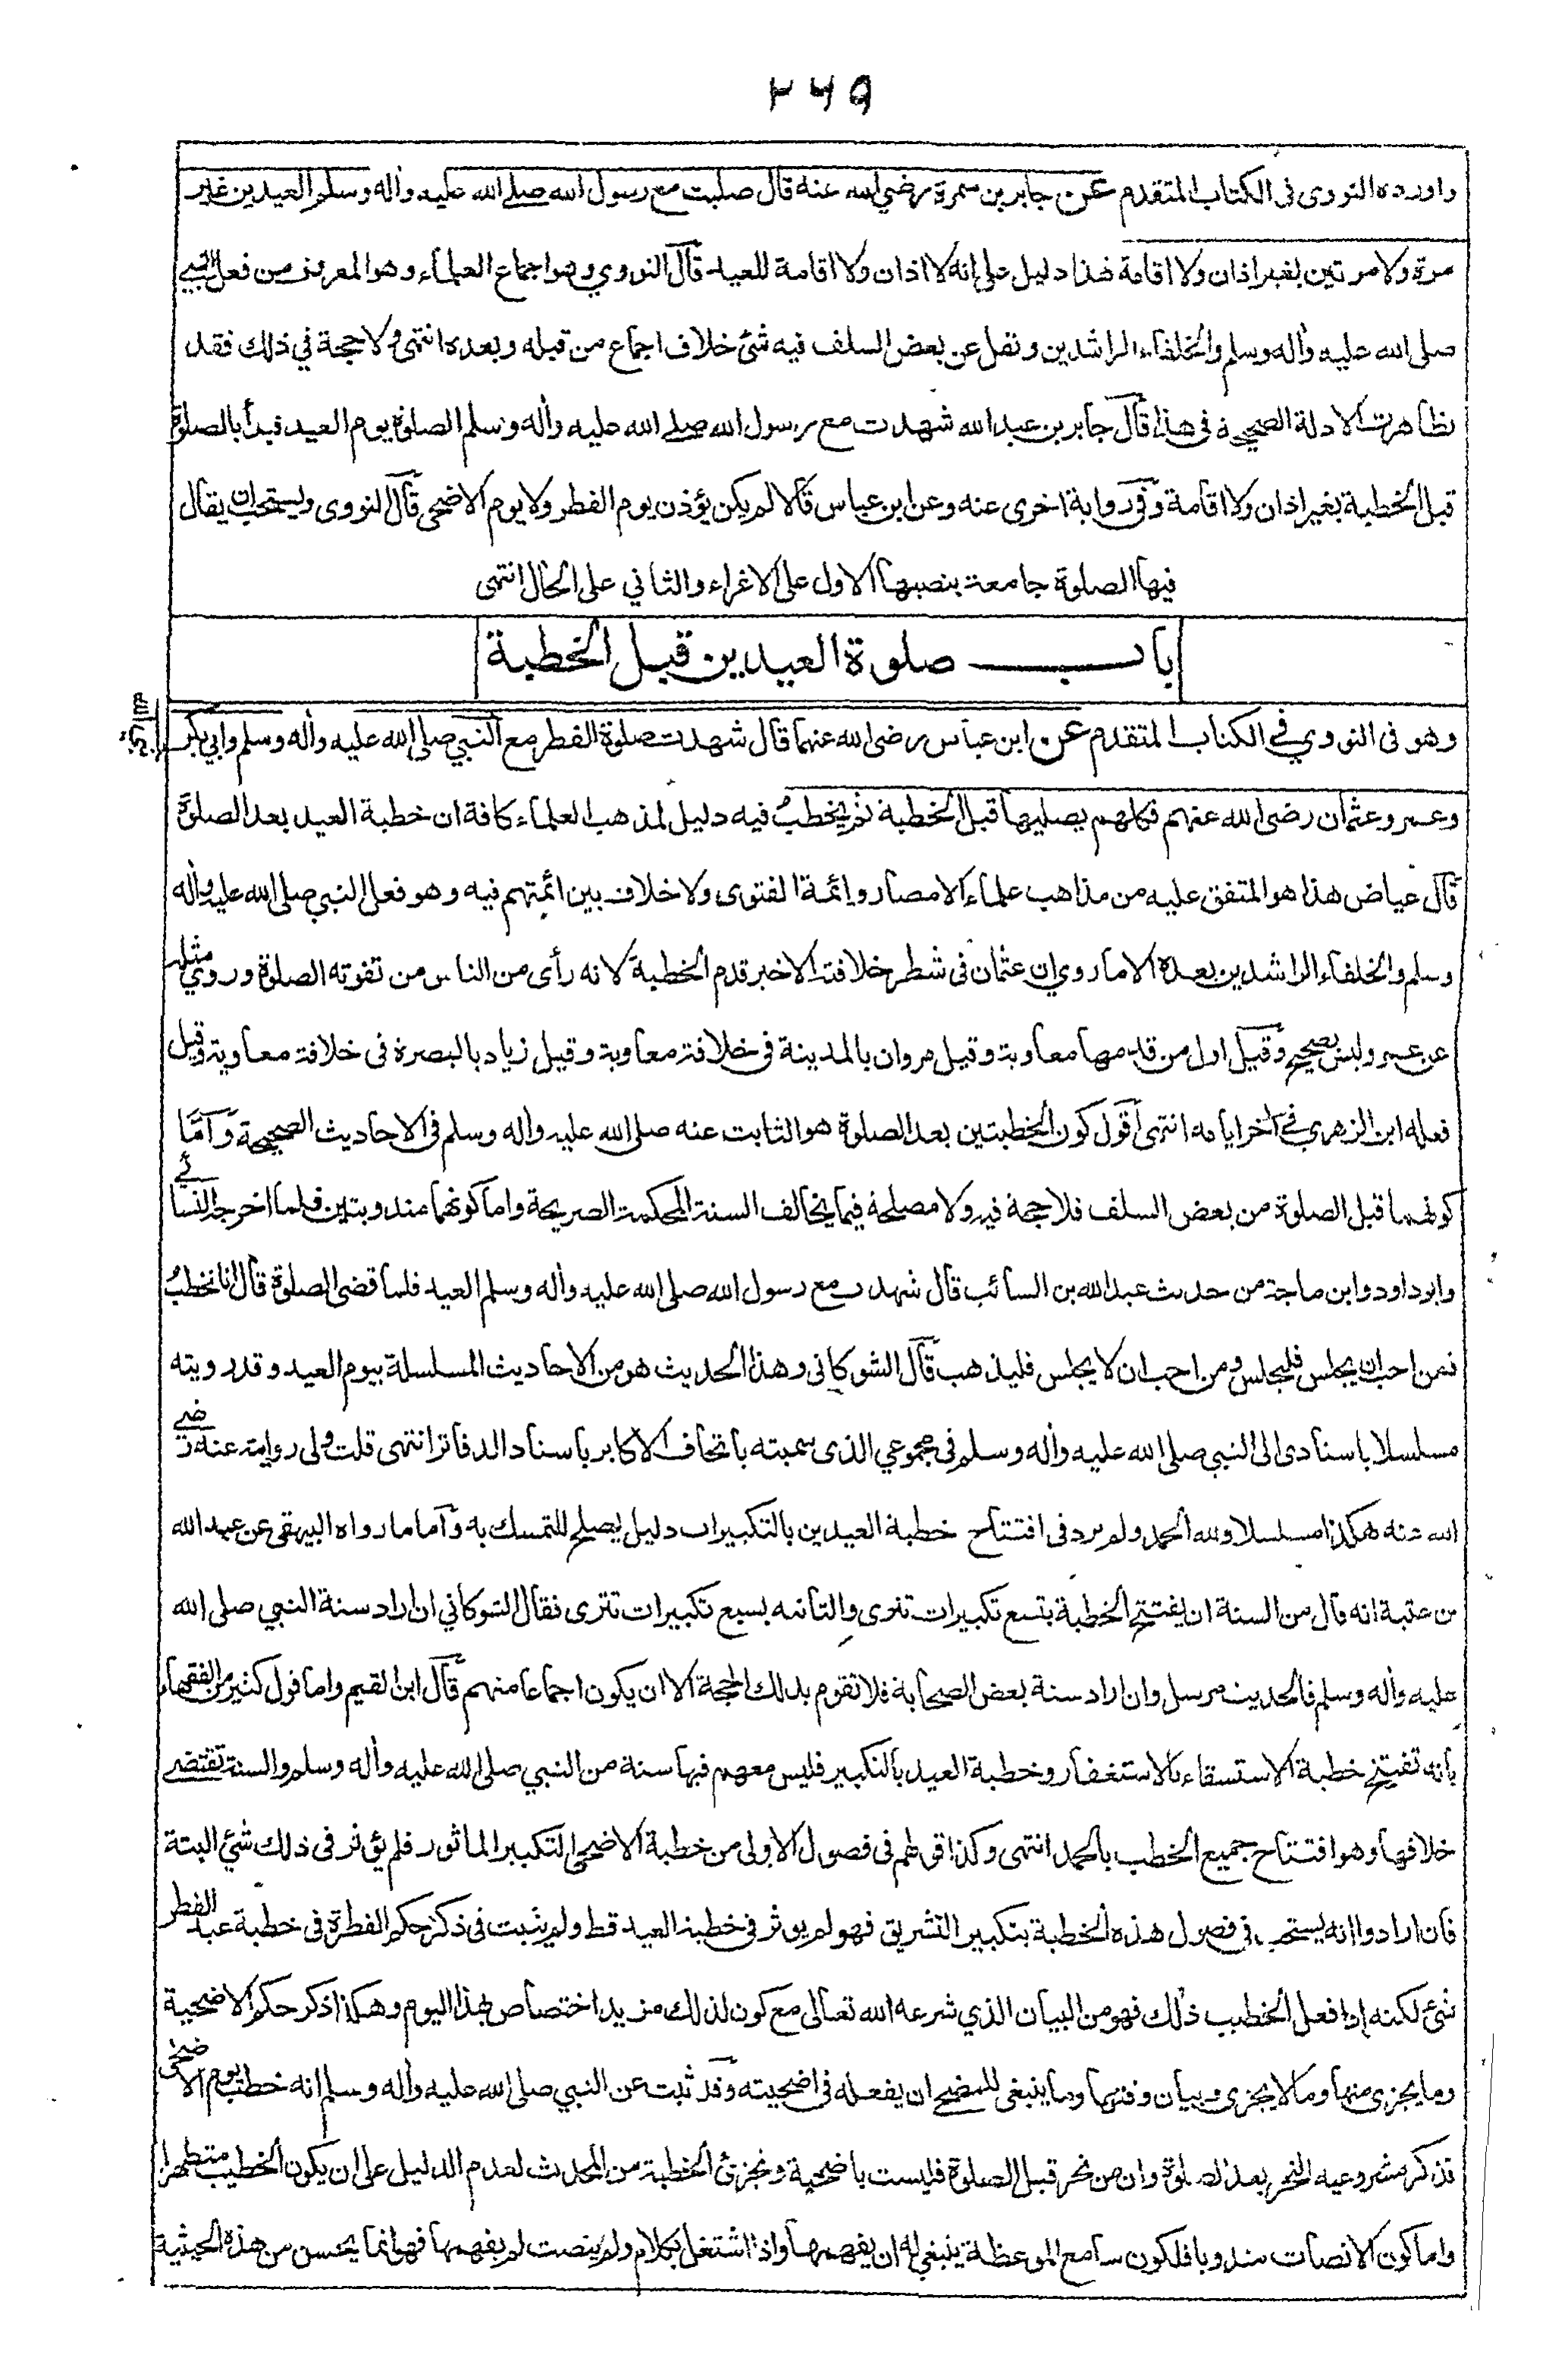 ٢٦٩
واورده النووى فى الكتاب المتقدم عن جابر بن سمرة رضي الله عنه قال صليت مع رسول الله صلے الله عليه واٰله وسلم العيدين غير
مرة ولا مرتين بغير اذان ولا اقامة هذا دليل على انه لا اذان ولا اقامة للعيد قال النووي وهو اجماع العلماء وهو المعروف من فعل النبي
صلى الله عليه واٰله وسلم والخلفاء الراشدين ونقل عن بعض السلف فيه شئ خلاف اجماع من قبله وبعده انتهى ولا حجة في ذلك فقد
تظاهرت الادلة الصحيحة فى هذا قال جابر بن عبد الله شهدت مع رسول الله صلے الله عليه واٰله وسلم الصلوة يوم العيد فبدأ بالصلوة
قبل الخطبة بغير اذان ولا اقامة وفى رواية اخرى عنه وعن ابن عباس قالا لم يكن يؤذن يوم الفطر ولا يوم الاضحى قال النووى ويستحب ان يقال
فيها الصلوة جامعة بنصبهما الاول على الاغراء والثاني على الحال انتهى
باب صلوة العيدين قبل الخطبة
وهو فى النووي في الكتاب المتقدم عن ابن عباس رضى الله عنهما قال شهدت صلوة الفطر مع النبي صلى الله عليه واٰله وسلم وابي بكر
وعمر وعثمان رضى الله عنهم فكلهم يصليها قبل الخطبة ثم يخطب فيه دليل لمذهب العلماء كافة ان خطبة العيد بعد الصلوة
قال عياض هذا هو المتفق عليه من مذاهب علماء الامصار وائمة الفتوى ولا خلاف بين ائمتهم فيه وهو فعل النبي صلى الله عليه واٰله
وسلم والخلفاء الراشدين بعده الا ما روي ان عثمان فى شطر خلافته الاخير قدم الخطبة لانه رأى من الناس من تفوته الصلوة وروي مثله
عن عمر وليس بصحيح وقيل اول من قدمها معاوية وقيل مروان بالمدينة فى خلافة معاوية وقيل زياد بالبصرة فى خلافة معاوية وقيل
فعله ابن الزهري في اٰخر ايامه انتهى اقول كون الخطبتين بعد الصلوة هو الثابت عنه صلى الله عليه واٰله وسلم فى الاحاديث الصحيحة وامّا
كونهما قبل الصلوة من بعض السلف فلا حجة فيه ولا مصلحة فيما يخالف السنة المحكمة الصريحة واما كونهما مندوبتين فلما اخرجه النسائي
وابو داود وابن ماجة من حديث عبد الله بن السائب قال شهدت مع رسول الله صلى الله عليه واٰله وسلم العيد فلما قضى الصلوة قال انا نخطب
فمن احب ان يجلس فليجلس ومن احب ان لا يجلس فليذهب قال الشوكانى وهذا الحديث هو من الاحاديث المسلسلة بيوم العيد وقد رويته
مسلسلا باسنادى الى النبي صلى الله عليه واٰله وسلم فى مجموعي الذى سميته باتحاف الاكابر باسناد الدفاتر انتهى قلت ولى رواية عنه رضي
الله عنه هكذا مسلسلا ولله الحمد ولم يرد فى افتتاح خطبة العيدين بالتكبيرات دليل يصلح للتمسك به واما ما رواه البيهقى عن عبد الله
بن عتبة انه قال من السنة ان يفتتح الخطبة بتسع تكبيرات تترى والثانية بسبع تكبيرات تترى فقال الشوكاني ان اراد سنة النبي صلى الله
عليه واٰله وسلم فالحديث مرسل وان اراد سنة بعض الصحابة فلا تقوم بذلك الحجة الا ان يكون اجماعا منهم قال ابن القيم واما قول كثير من الفقهاء
بانه تفتتح خطبة الاستسقاء بالاستغفار وخطبة العيد بالتكبير فليس معهم فيها سنة من النبي صلى الله عليه واٰله وسلم والسنة تقتضے
خلافها وهو افتتاح جميع الخطب بالحمد انتهى وكذا قولهم فى فصول الاولى من خطبة الاضحى التكبير الماثور فلم يؤثر فى ذلك شئ البتة
فان ارادوا انه يستحب فى فصول هذه الخطبة بتكبير التشريق فهو لم يوثر فى خطبة العيد قط ولم يثبت فى ذكر حكم الفطرة فى خطبة عيد الفطر
شئ لكنه اذا فعل الخطيب ذلك فهو من البيان الذي شرعه الله تعالى مع كون لذلك مزيد اختصاص بهذا اليوم وهكذا ذكر حكم الاضحية
وما يجزى منها وما لا يجزى وبيان وقتها وما ينبغى للمضحے ان يفعله فى اضحيته وقد ثبت عن النبي صلى الله عليه واٰله وسلم انه خطب يوم الاضحى
فذكر مشروعية النحر بعد الصلوة وان من نحر قبل الصلوة فليست باضحية وتجزئ الخطبة من المحدث لعدم الدليل على ان يكون الخطيب متطهرا
واما كون الانصات مندوبا فلكون سامع الموعظة ينبغي له ان يفهمها واذا اشتغل بكلام ولم ينصت لم يفهمها فهو انما يحسن من هذه الحيثية